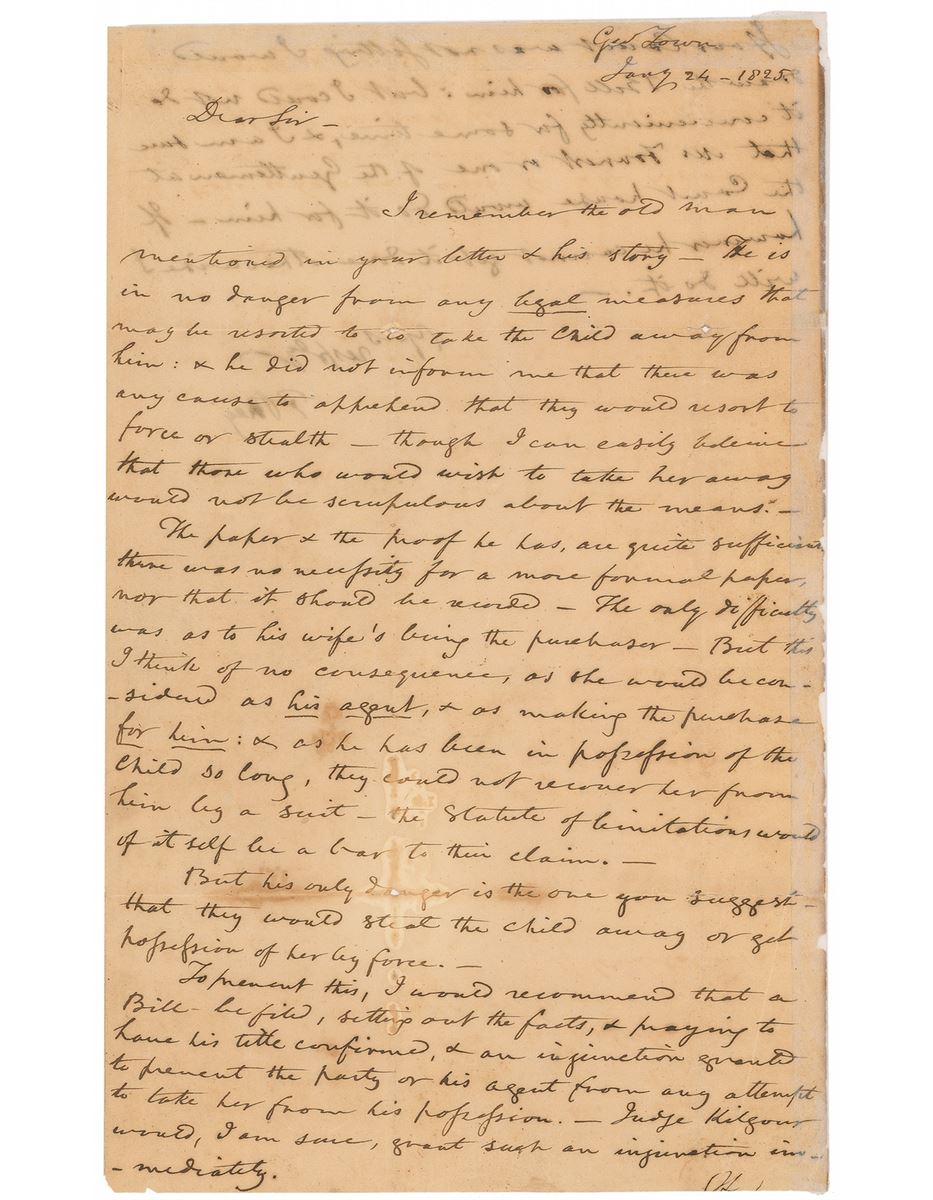 Geo Town
Jany 24 - 1825.
Dear Sir -
I remember the old man
mentioned in your letter & his story - He is
in no danger from any legal measures that
may be resorted to to take the Child away from
him: & he did not inform me that there was
any cause to apprehend that they would resort to
force or stealth - though I can easily beleive
that those who would wish to take her away
would not be scrupulous about the means. -
The paper & the proof he has, are quite sufficient
there was no necessity for a more formal paper,
nor that it should be recorded - The only difficulty
was as to his wife's being the purchaser - But this
I think of no consequence, as she would be con-
-sidered as his agent, & as making the purchase
for him: & as he has been in possession of the
Child so long, they could not recover her from
him by a suit - the Statute of limitations would
of itself be a bar to their claim. -
But his only danger is the one you suggest -
that they would steal the child away or get
possession of her by force. -
To prevent this, I would recommend that a
Bill - be filed, setting out the facts, & praying to
have his title confirmed, & an injunction granted
to prevent the party or his agent from any attempt
to take her from his possession. - Judge Kilgour
would, I am sure, grant such an injunction im-
-mediately.